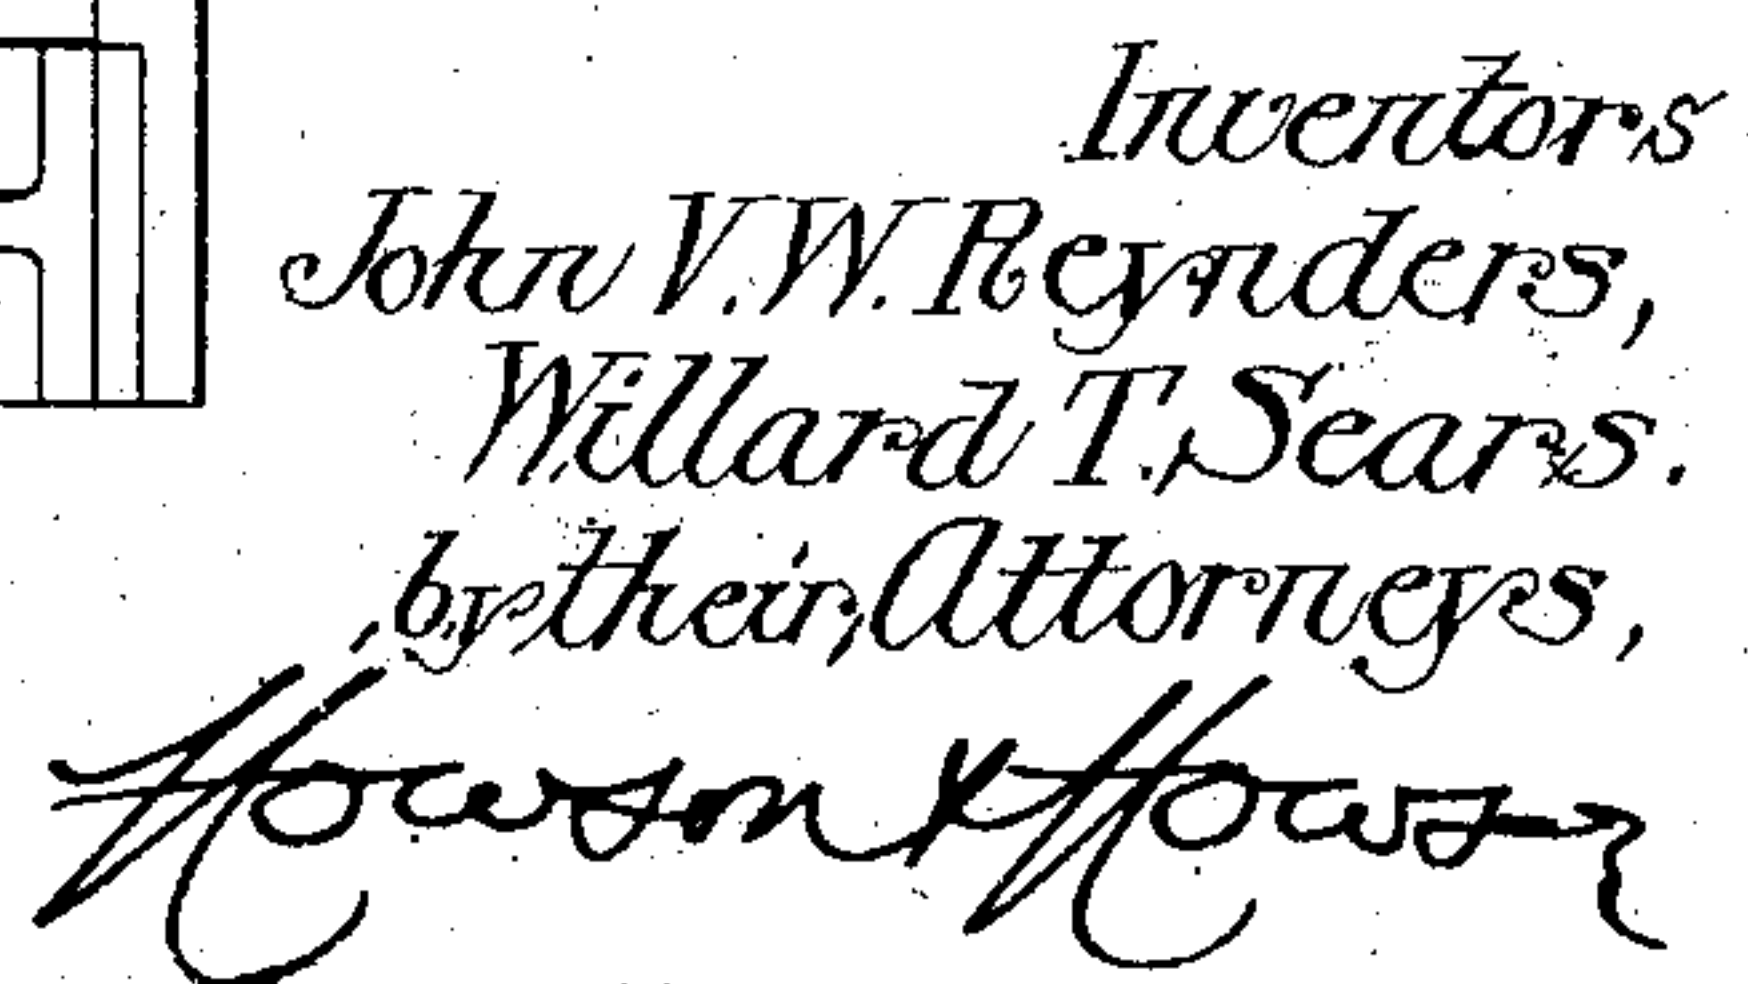 Inventors
John V. W. Reynders,
Willard T. Sears.
by their Attorneys,
Howson & Howson